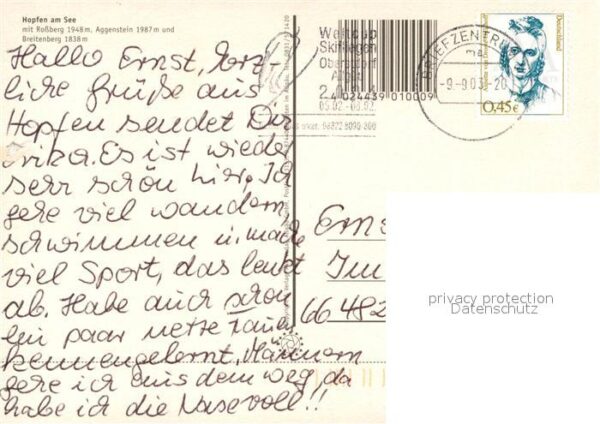 Hopfen am See
mit Roßberg 1948 m, Aggenstein 1987 m und
Breitenberg 1838 m
Hallo Ernst, herz-
liche Grüße aus
Hopfen sendet Dir
Erika. Es ist wieder
sehr schön hier, Ich
gehe viel wandern,
schwimmen u. mache
viel Sport, das lenkt
ab. Habe auch schon
ein paar nette Frauen
kennengelernt, Männern
gehe ich aus dem weg da
habe ich die Nase voll!!
Weltcup
Skifliegen
Oberstdorf
4 024439 010009
BRIEFZENTRUM
-9.-9.03
20
Deutschland
0,45€
Ernst
Im
66482
privacy protection
Datenschutz